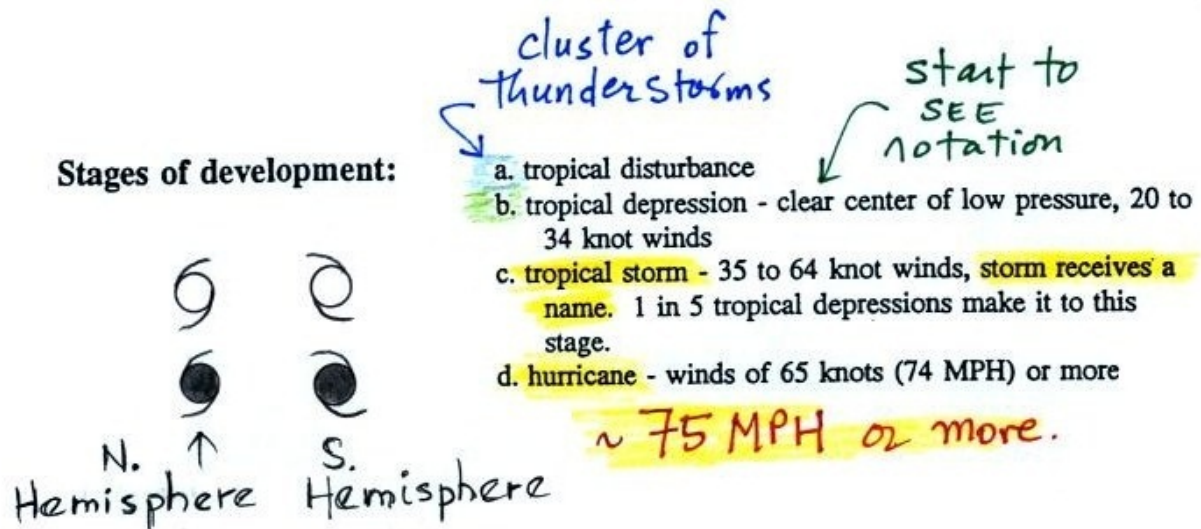 cluster of
thunderstorms
start to
SEE
notation
Stages of development:
a. tropical disturbance
b. tropical depression - clear center of low pressure, 20 to
34 knot winds
c. tropical storm - 35 to 64 knot winds, storm receives a
name. 1 in 5 tropical depressions make it to this
stage.
d. hurricane - winds of 65 knots (74 MPH) or more
~ 75 MPH or more.
N. S.
Hemisphere Hemisphere